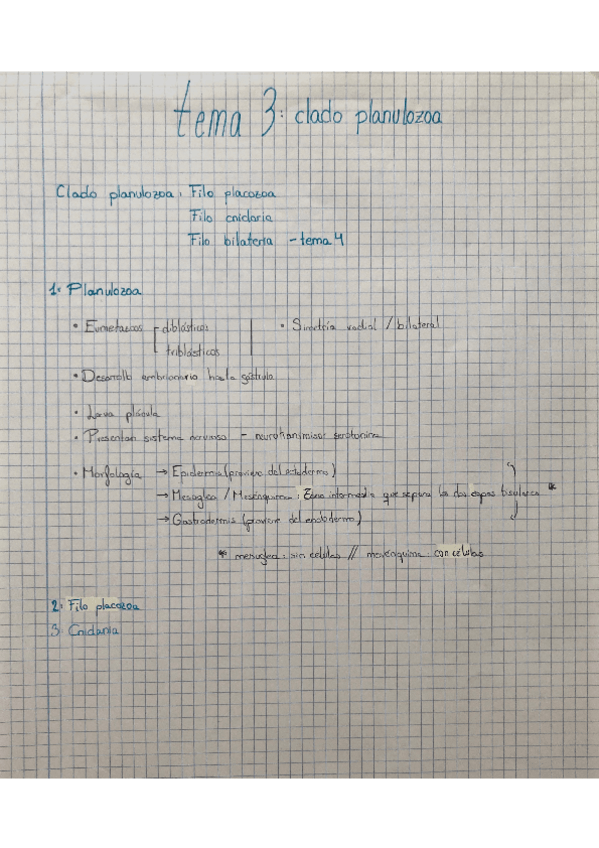 tema 3: clado planulozoa
Clado planulozoa: Filo placozoa
Filo cnidaria
Filo bilateria - tema 4
1: Planulozoa
• Eumetazoos diblásticos • Simetría radial / bilateral
triblásticos
• Desarrollo embrionario hasta gástrula
• Larva plánula
• Presentan sistema nervioso - neurotransmisor serotonina
• Morfología → Epidermis (proviene del ectodermo)
→ Mesoglea / Mesénquima: Zona intermedia que separa las dos capas tisulares *
→ Gastrodermis (proviene del endodermo)
* mesoglea: sin células // mesénquima: con células
2: Filo placozoa
3: Cnidaria